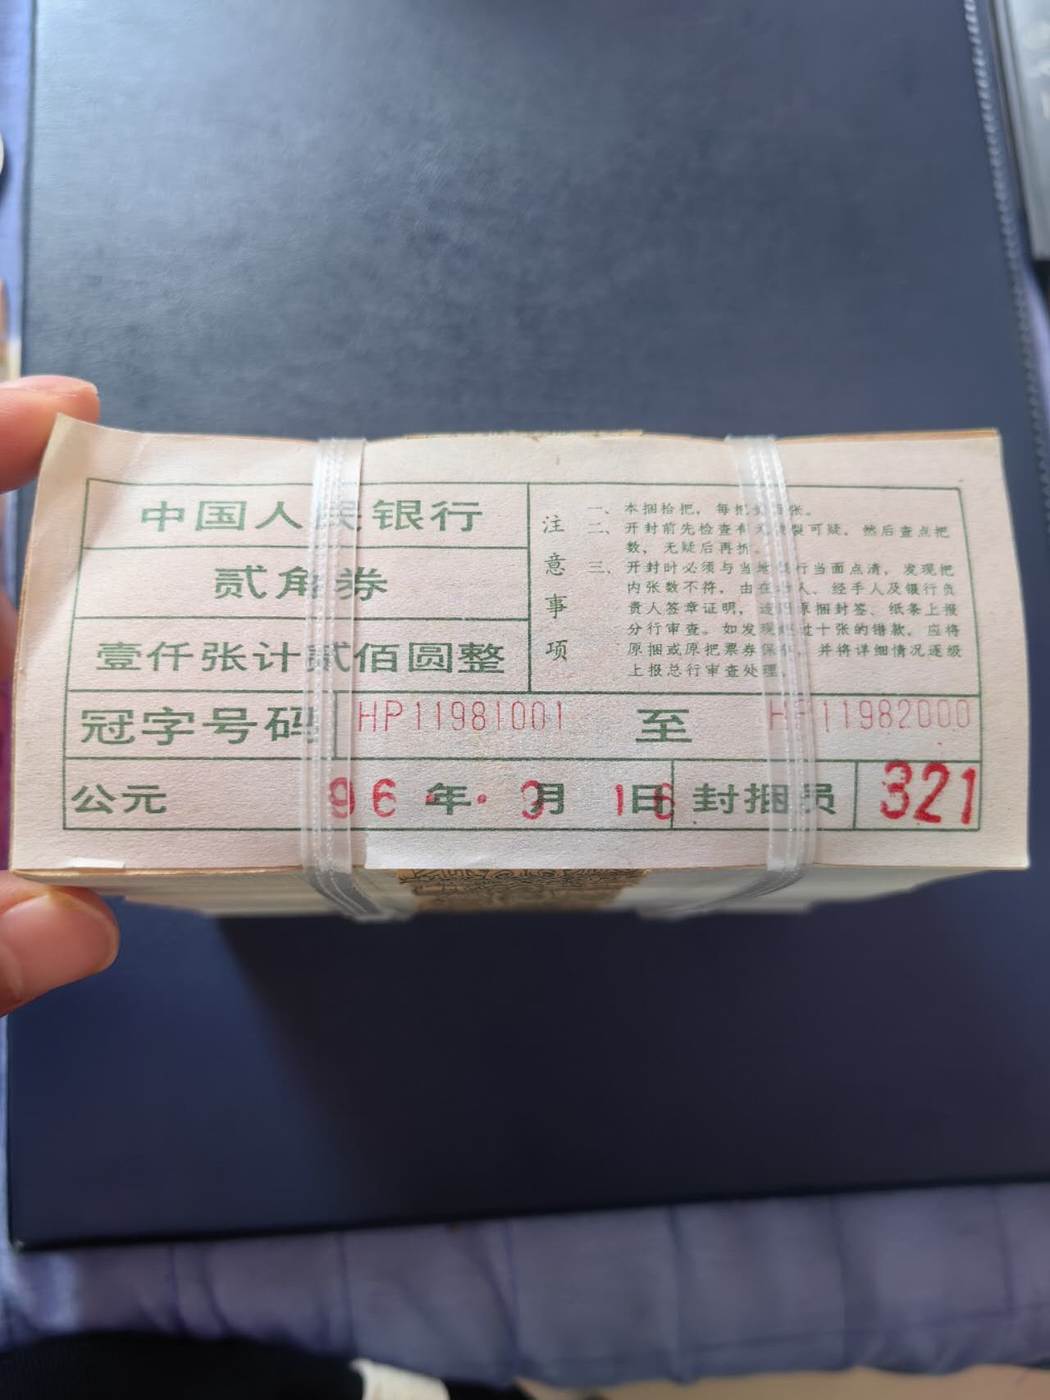 中国人民银行
贰角券
壹仟张计贰佰圆整
注意事项
一、本捆拾把,每把 张。
二、开封前先检查有无 裂可疑,然后查点把
数,无疑后再拆。
三、开封时必须与当地 行当面点清,发现把
内张数不符,由在 人、经手人及银行负
责人签章证明,连同原捆封签、纸条上报
分行审查。如发现 过十张的错款,应将
原捆或原把票券保 ,并将详细情况逐级
上报总行审查处理
冠字号码 HP11981001 至 HP11982000
公元 96年· 月 16日 封捆员 321